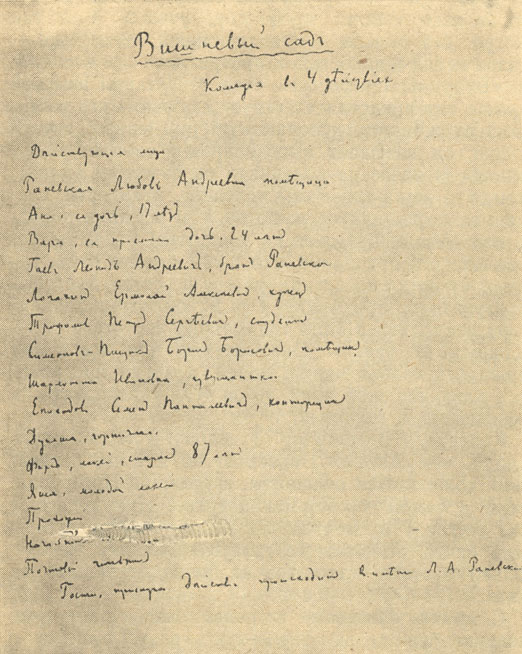 Вишневый садъ
Комедія въ 4 дѣйствіяхъ
Дѣйствующія лица
Раневская Любовь Андреевна, помѣщица
Аня, ея дочь, 17 лѣтъ
Варя, ея пріемная дочь, 24 лѣтъ
Гаевъ Леонидъ Андреевичъ, братъ Раневской
Лопахинъ Ермолай Алексѣевичъ, купецъ
Трофимовъ Петръ Сергѣевичъ, студентъ
Симеоновъ-Пищикъ Борисъ Борисовичъ, помѣщикъ
Шарлотта Ивановна, гувернантка
Епиходовъ Семенъ Пантелеевичъ, конторщикъ
Дуняша, горничная.
Фирсъ, лакей, старикъ 87 лѣтъ
Яша, молодой лакей
Прохожій
Начальникъ
Почтовый чиновникъ
Гости, прислуга Дѣйствіе происходитъ въ имѣніи Л. А. Раневской